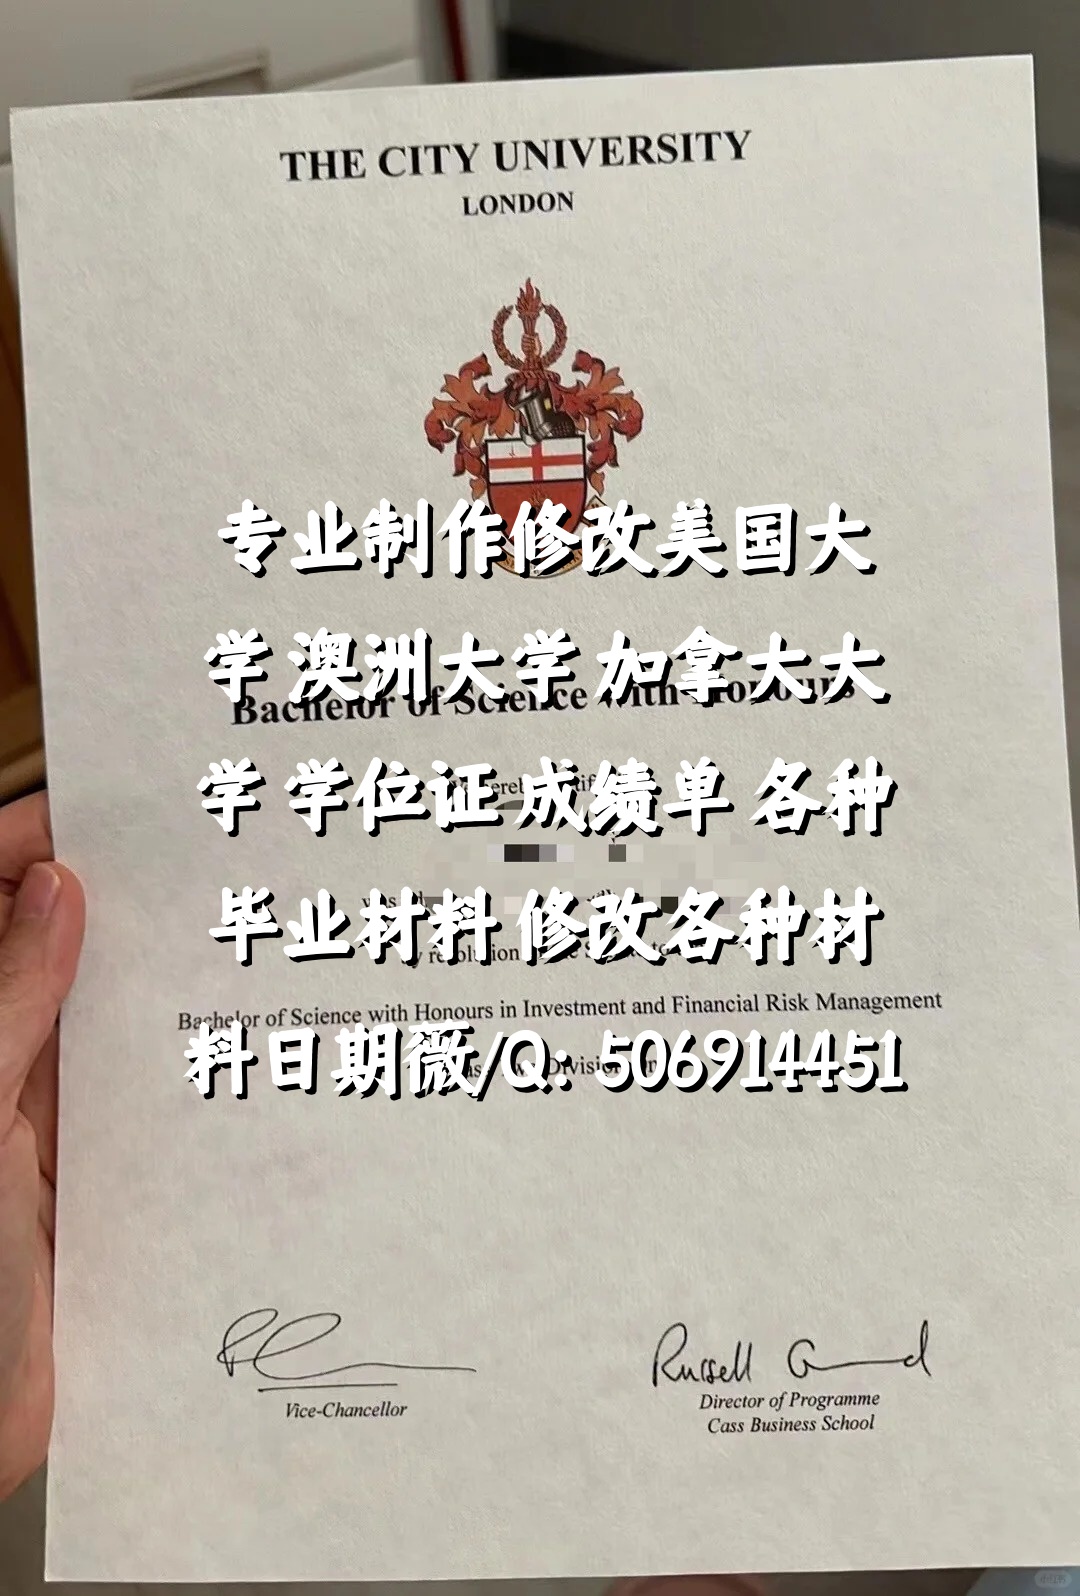 THE CITY UNIVERSITY
LONDON
专业制作修改美国大
学 澳洲大学 加拿大大
Bachelor of Science with Honours
学 学位证 成绩单 各种
毕业材料 修改各种材
Bachelor of Science with Honours in Investment and Financial Risk Management
料日期微/Q: 506914451
Vice-Chancellor
Russell
Director of Programme
Cass Business School